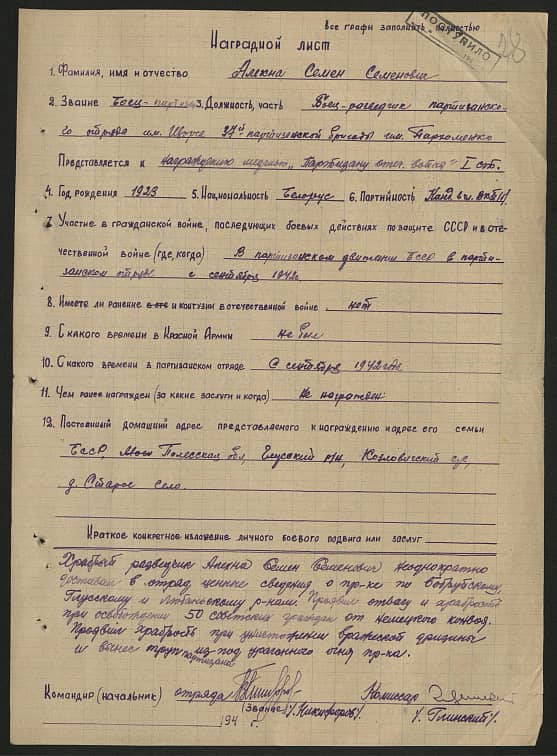 Все графы заполнять полностью
ПОСТУПИЛО
28
Наградной лист
1. Фамилия, имя и отчество Алехна Семен Семенович
2. Звание Боец-партизан 3. Должность, часть Боец-разведчик партизанско-
го отряда им. 37й партизанской бригады им. Пархоменко
Представляется к награждению медалью „Партизану отеч. войны" I ст.
4. Год рождения 1923 5. Национальность Белорус 6. Партийность Канд. в чл. ВКП(б)
7. Участие в гражданской войне, последующих боевых действиях по защите СССР и в оте-
чественной войне (где, когда) В партизанском движении БССР в парти-
занском отряде с сентября 1942г
8. Имеете ли ранение и контузии в отечественной войне нет
9. С какого времени в Красной Армии не был
10. С какого времени в партизанском отряде С сентября 1942 года
11. Чем ранее награжден (за какие заслуги и когда) Не награжден
12. Постоянный домашний адрес представляемого к награждению и адрес его семьи
БССР, Полесская обл, Глусский р-н, Козловичский с/с,
д. Старое Село.
Краткое конкретное изложение личного боевого подвига или заслуг
Храбрый разведчик Алехна Семен Семенович неоднократно
доставал в отряд ценные сведения о пр-ке по Бобруйскому,
Глусскому и Любанскому р-нам. Проявил отвагу и храбрость
при освобождении 50 советских граждан от немецкого конвоя.
Проявил храбрость при уничтожении вражеской дрезины
и вынес труп партизана из-под ураганного огня пр-ка.
Командир (начальник) отряда Комиссар
(звание) /Никифоров/ /Глинский/
194 г.